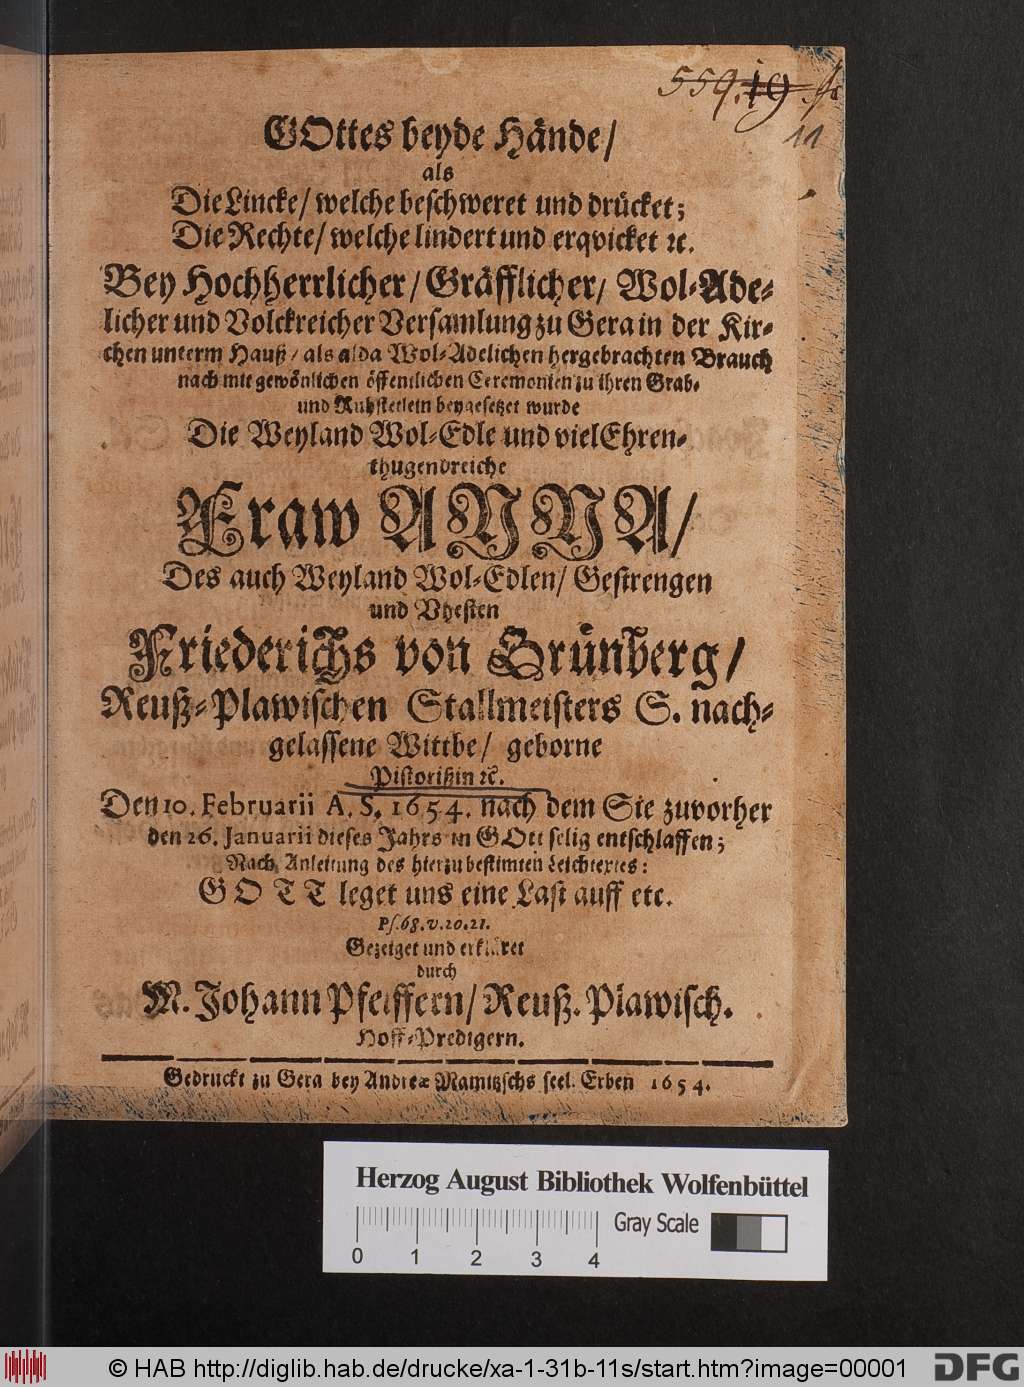 559.19
11
GOttes beyde Hände/
als
Die Lincke/ welche beschweret und drücket;
Die Rechte/ welche lindert und erqvicket ꝛc.
Bey Hochherrlicher/ Gräfflicher/ Wol-Ade-
licher und Volckreicher Versamlung zu Gera in der Kir-
chen unterm Hauß/ als alda Wol-Adelichen hergebrachten Brauch
nach mit gewönlichen öffentlichen Ceremonien zu ihren Grab-
und Ruhstetlein beygesetzet wurde
Die Weyland Wol-Edle und viel Ehren-
thugendreiche
Fraw ANNA/
Des auch Weyland Wol-Edlen/ Gestrengen
und Vhesten
Friederichs von Grünberg/
Reuß-Plawischen Stallmeisters S. nach-
gelassene Wittbe/ geborne
Pistorißin ꝛc.
Den 10. Februarii A. S. 1654. nach dem Sie zuvorher
den 26. Januarii dieses Jahrs in GOtt selig entschlaffen;
Nach Anleitung des hierzu bestimten Leichtextes:
GOTT leget uns eine Last auff etc.
Ps. 68. v. 20. 21.
Gezeiget und erkläret
durch
M. Johann Pfeiffern/ Reuß. Plawisch.
Hoff-Predigern.
Gedruckt zu Gera bey Andreæ Mamitzschs seel. Erben 1654.
Herzog August Bibliothek Wolfenbüttel
0 1 2 3 4 Gray Scale
© HAB http://diglib.hab.de/drucke/xa-1-31b-11s/start.htm?image=00001 DFG